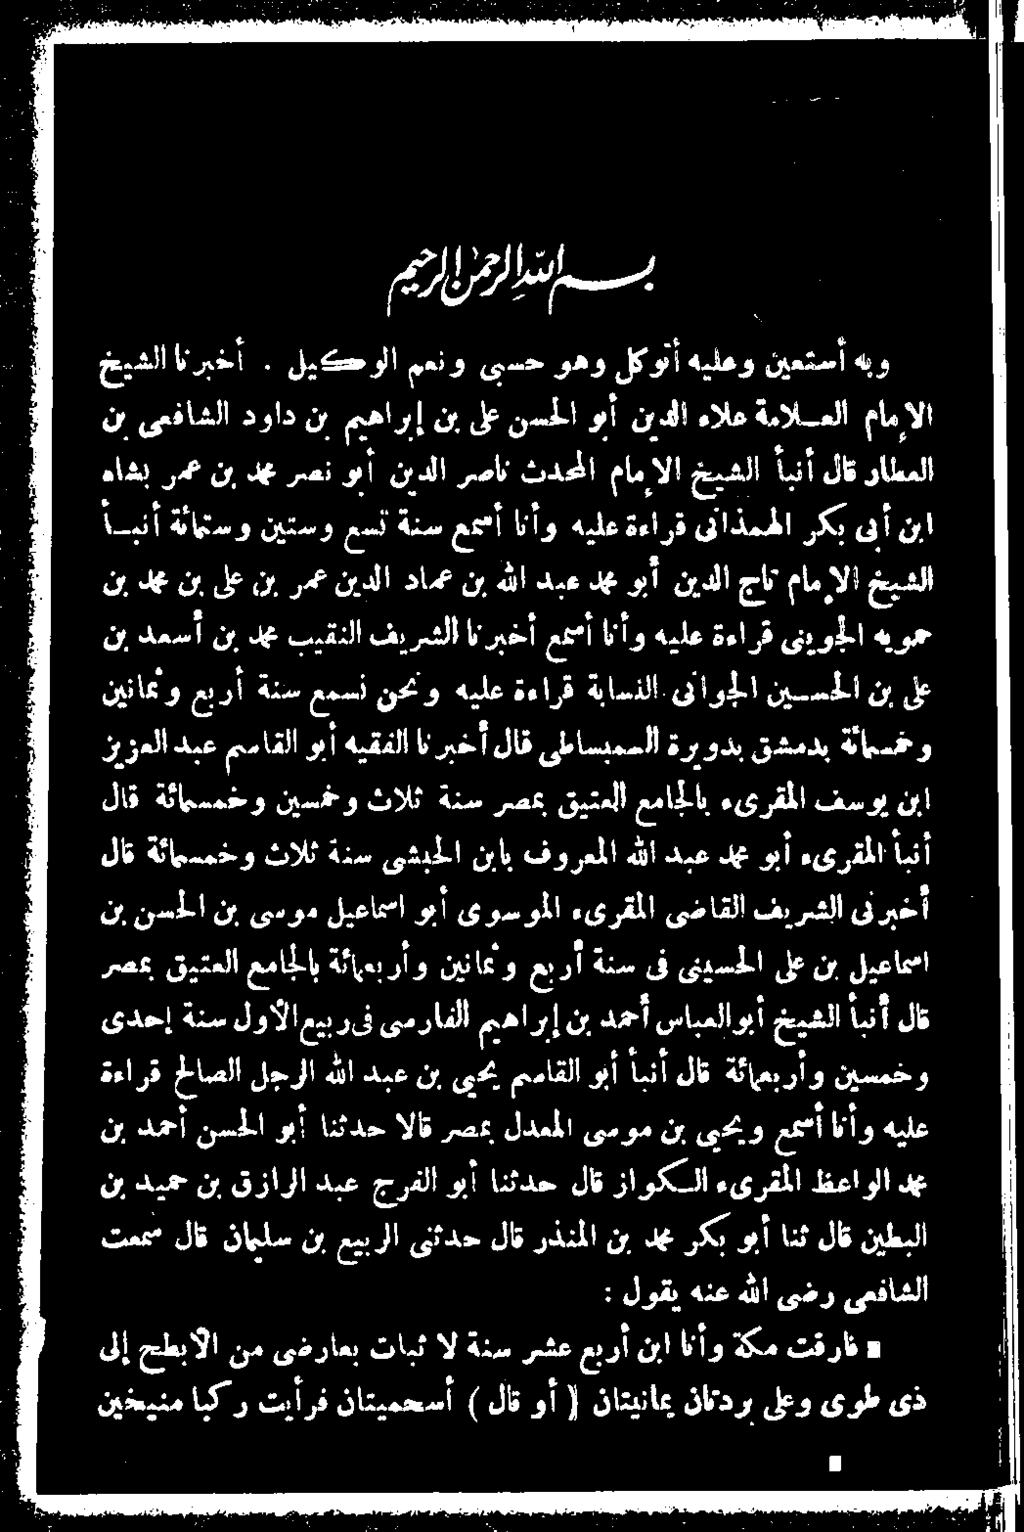 بسم الله الرحمن الرحيم
وبه أستعين وعليه أتوكل وهو حسبى ونعم الوكيل . أخبرنا الشيخ
الإمام العـلامة علاء الدين أبو الحسن على بن إبراهيم بن داود الشافعى بن
العطار قال أنبأ الشيخ الإمام المحدث ناصر الدين أبو نصر محمد بن عمر بشاه
ابن أبى بكر الهمذانى قراءة عليه وأنا أسمع سنة تسع وستين وستمائة أنبـأ
الشيخ الإمام تاج الدين أبو محمد عبد الله بن عماد الدين عمر بن على بن محمد بن
حمويه الجوينى قراءة عليه وأنا أسمع أخبرنا الشريف النقيب محمد بن أسعد بن
على بن الحسـين الجوانى النسابة قراءة عليه ونحن نسمع سنة أربع وثمانين
وخمسمائة بدمشق بدويرة السميساطى قال أخبرنا الفقيه أبو القاسم عبد العزيز
ابن يوسف المقرىء بالجامع العتيق بمصر سنة ثلاث وخمسين وخمسمائة قال
أنبأ المقرىء أبو محمد عبد الله المعروف بابن الحبشى سنة ثلاث وخمسمائة قال
أخبرنى الشريف القاضى المقرىء الموسوى أبو اسماعيل موسى بن الحسن بن
اسماعيل بن على الحسينى فى سنة أربع وثمانين وأربعمائة بالجامع العتيق بمصر
قال أنبأ الشيخ أبو العباس أحمد بن إبراهيم الفارسى فى ربيع الأول سنة إحدى
وخمسين وأربعمائة قال أنبأ أبو القاسم يحيى بن عبد الله الرجل الصالح قراءة
عليه وأنا أسمع ويحيى بن موسى المعدل بمصر قالا حدثنا أبو الحسن أحمد بن
محمد الواعظ المقرىء الـكواز قال حدثنا أبو الفرج عبد الرازق بن حميد بن
البطين قال ثنا أبو بكر محمد بن المنذر قال حدثنى الربيع بن سليمان قال سمعت
الشافعى رضى الله عنه يقول :
■ فارقت مكة وأنا ابن أربع عشر سنة لا ثبات بعارضى من الأبطح إلى
ذى طوى وعلى بردتان يمانيتان ( أو قال ) أسحميتان فرأيت ركبا منيخين